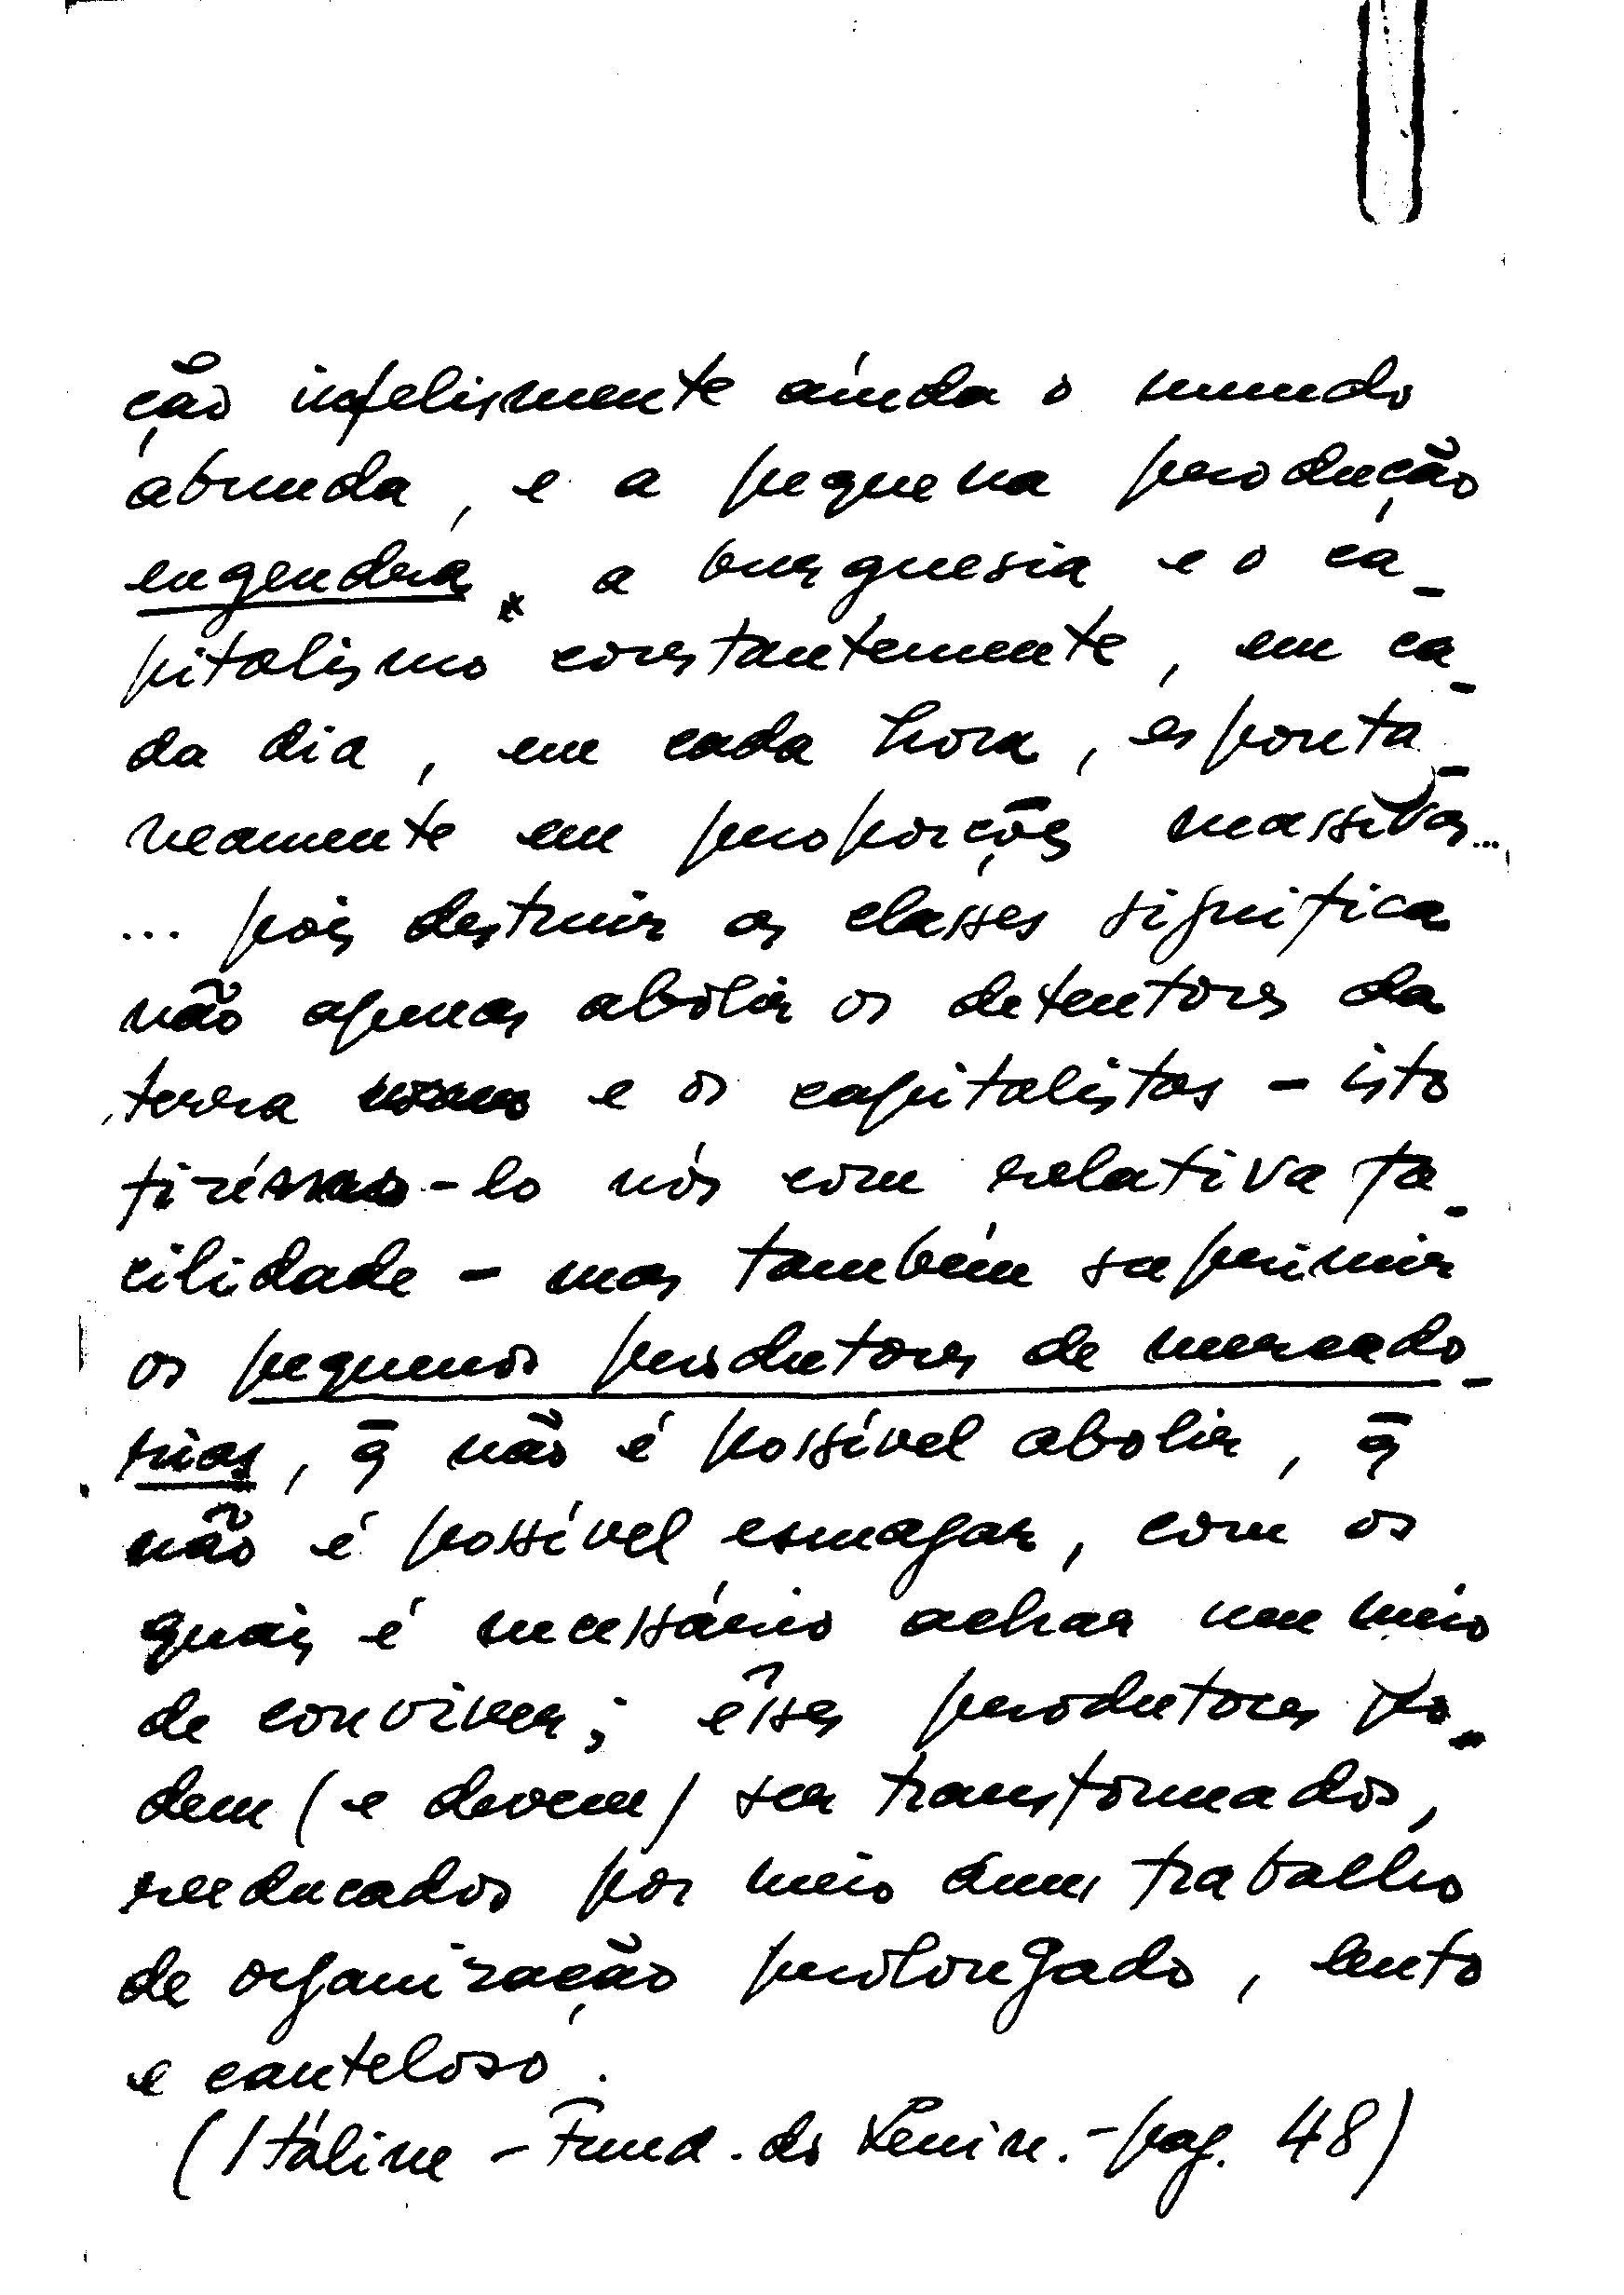 ção infelismente ainda o mundo
abunda, e a pequena produção
engendra * a burguesia e o ca-
pitalismo constantemente, em ca-
da dia, em cada hora, esponta-
neamente em proporções massivas...
... pois destruir as classes significa
não apenas abolir os detentores da
terra e os capitalistas - isto
fizémos-lo nós com relativa fa-
cilidade - mas também suprimir
os pequenos produtores de mercado-
rias, q̄ não é possível abolir, q̄
não é possível esmagar, com os
quais é necessário achar um meio
de conviver; êsses produtores po-
dem (e devem) ser transformados,
reeducados por meio dum trabalho
de organização prolongado, lento
e cauteloso.
(Stáline - Fund. do Lenin. - pag. 48)